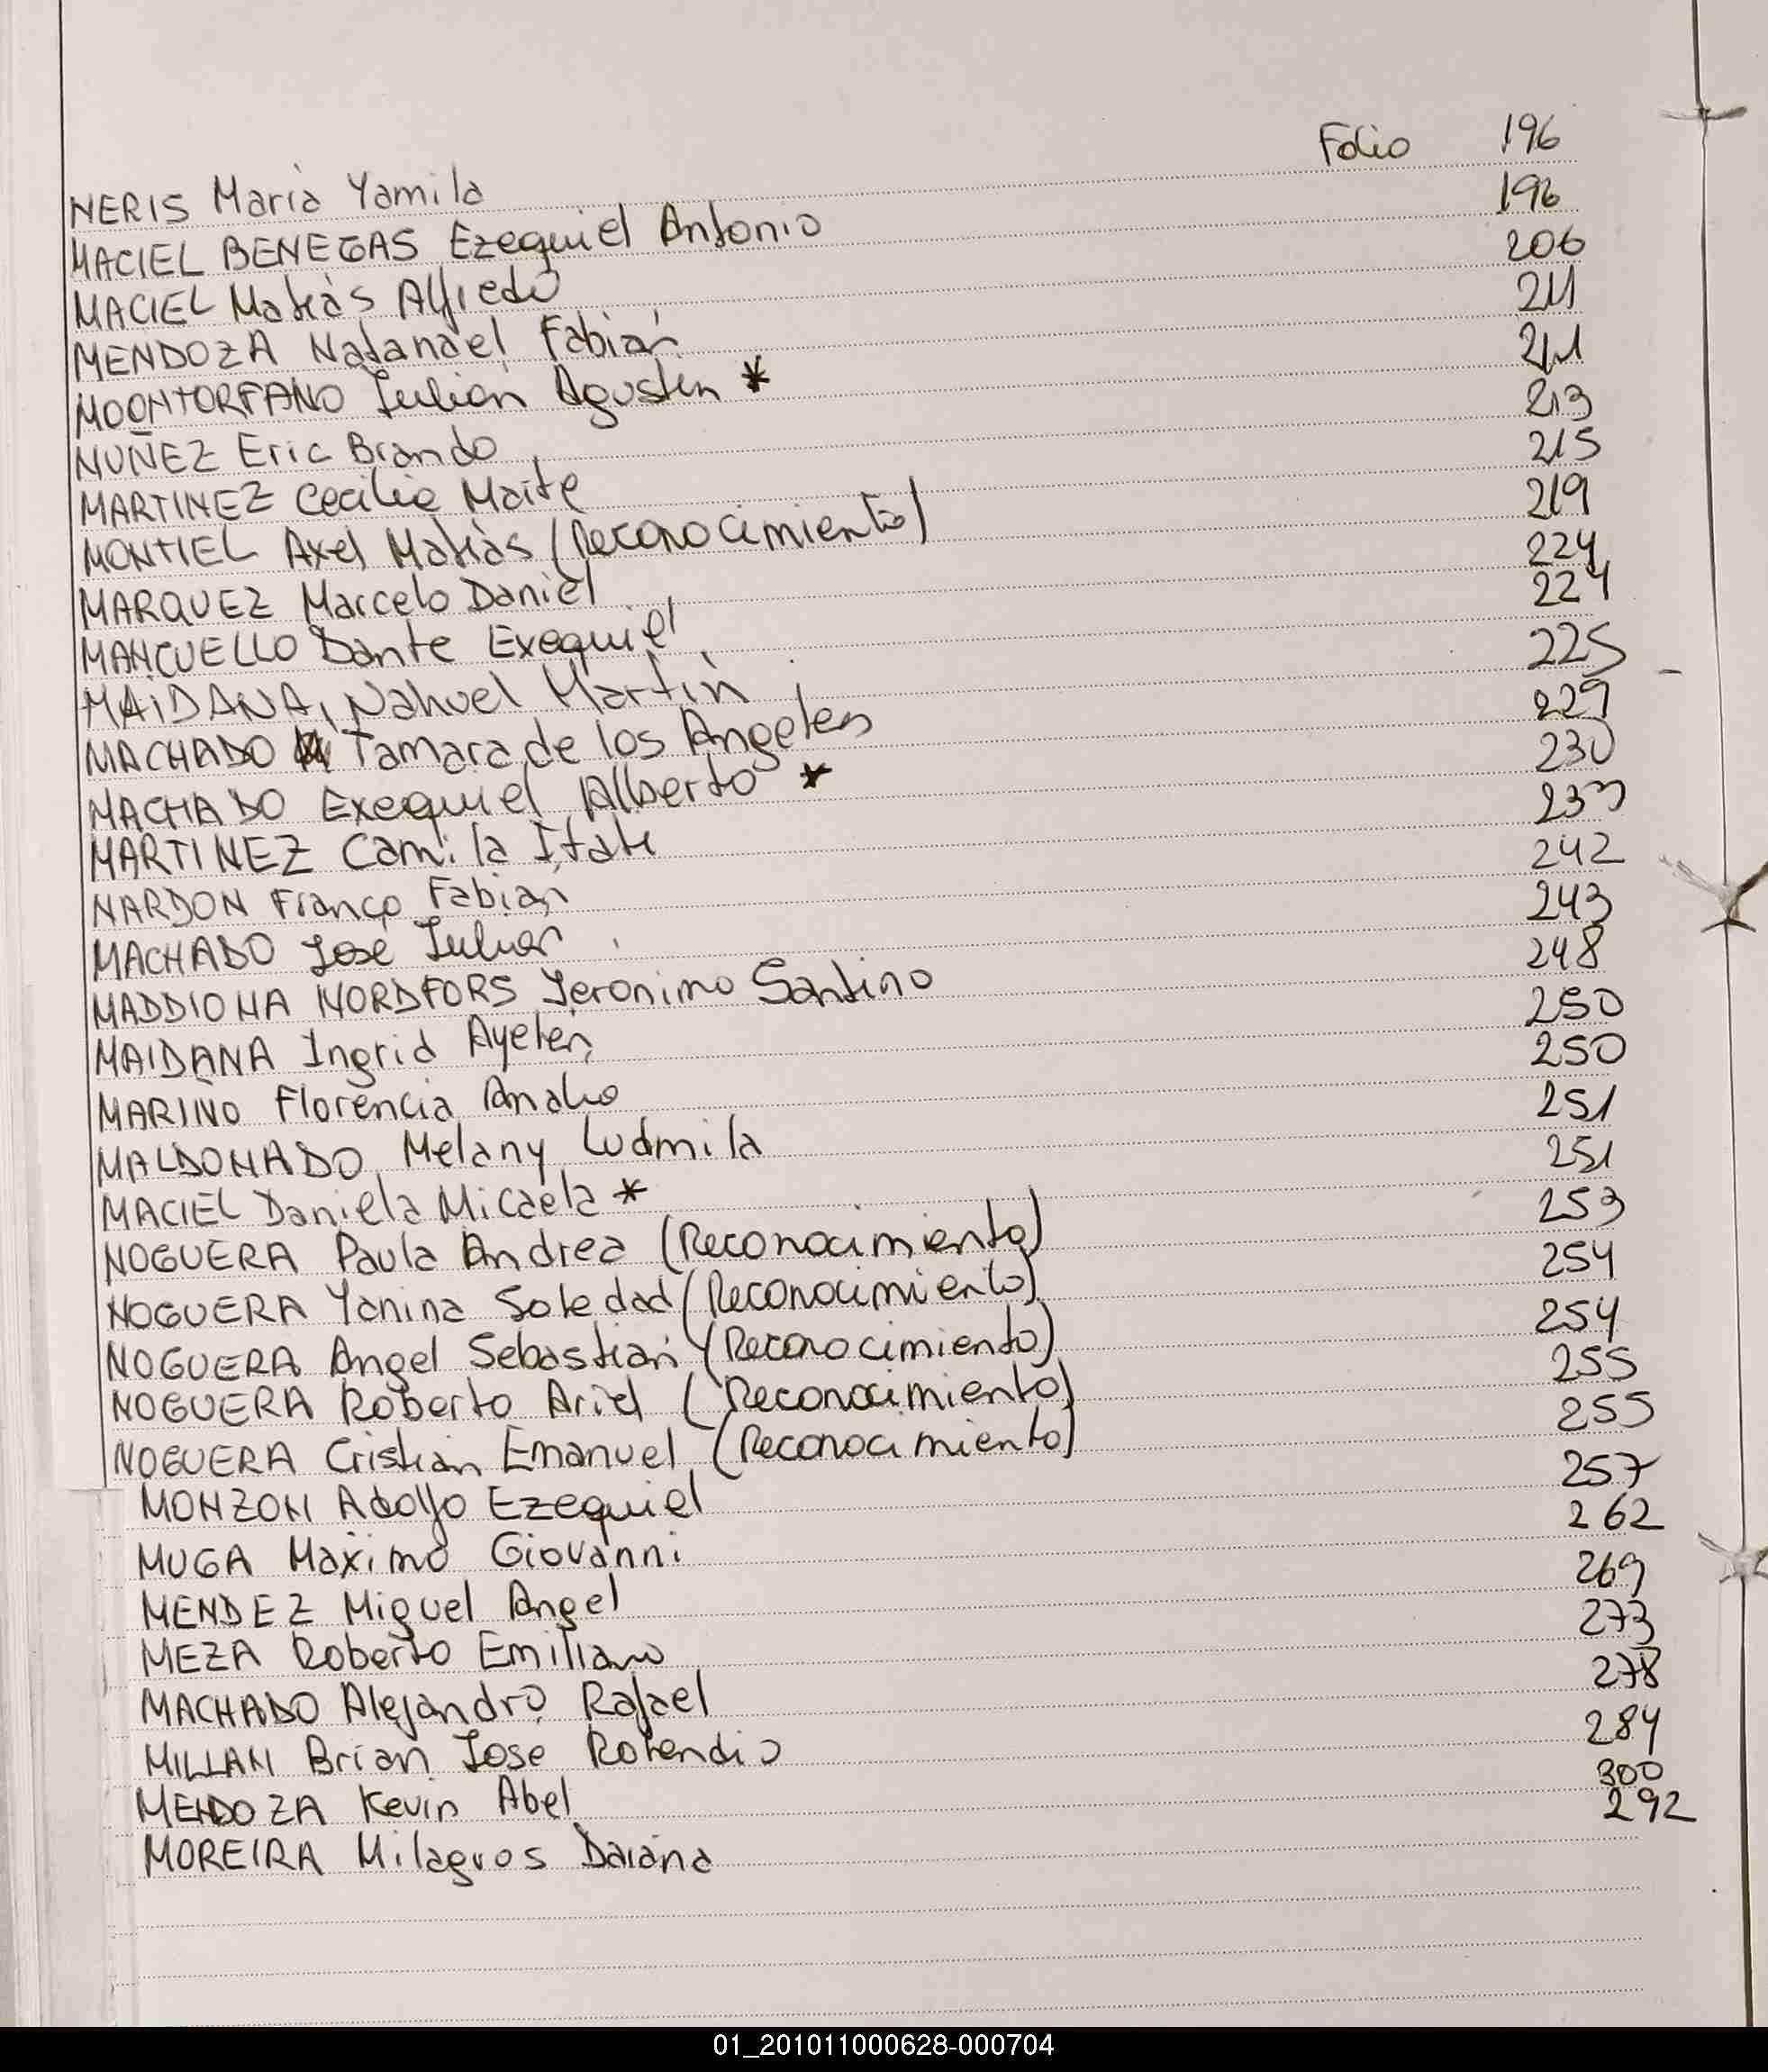 NERIS Maria Yamila Folio 196
MACIEL BENEGAS Ezequiel Antonio 196
MACIEL Matías Alfredo 206
MENDOZA Natanael Fabián 211
MOONTORFANO Julián Agustín * 211
NUÑEZ Eric Brando 213
MARTINEZ Cecilia Maite 215
MONTIEL Axel Matías (Reconocimiento) 219
MARQUEZ Marcelo Daniel 224
MANCUELLO Dante Exequiel 224
MAIDANA, Nahuel Martín 225
MACHADO Tamara de los Angeles 229
MACHADO Exequiel Alberto * 230
MARTINEZ Camila Itati 233
NARDON Franco Fabian 242
MACHADO José Julian 243
MADDIONA NORDFORS Jeronimo Santino 248
MAIDANA Ingrid Ayelen 250
MARIÑO Florencia Anahi 250
MALDONADO Melany Ludmila 251
MACIEL Daniela Micaela * 251
NOGUERA Paula Andrea (Reconocimiento) 253
NOGUERA Yanina Soledad (Reconocimiento) 254
NOGUERA Angel Sebastian (Reconocimiento) 254
NOGUERA Roberto Ariel (Reconocimiento) 255
NOGUERA Cristian Emanuel (Reconocimiento) 255
MONZON Adolfo Ezequiel 257
MUGA Maximo Giovanni 262
MENDEZ Miguel Angel 269
MEZA Roberto Emiliano 273
MACHADO Alejandro Rafael 278
MILLAN Brian Jose 284
MENDOZA Kevin Abel 300
MOREIRA Milagros Daiana 292
01_201011000628-000704